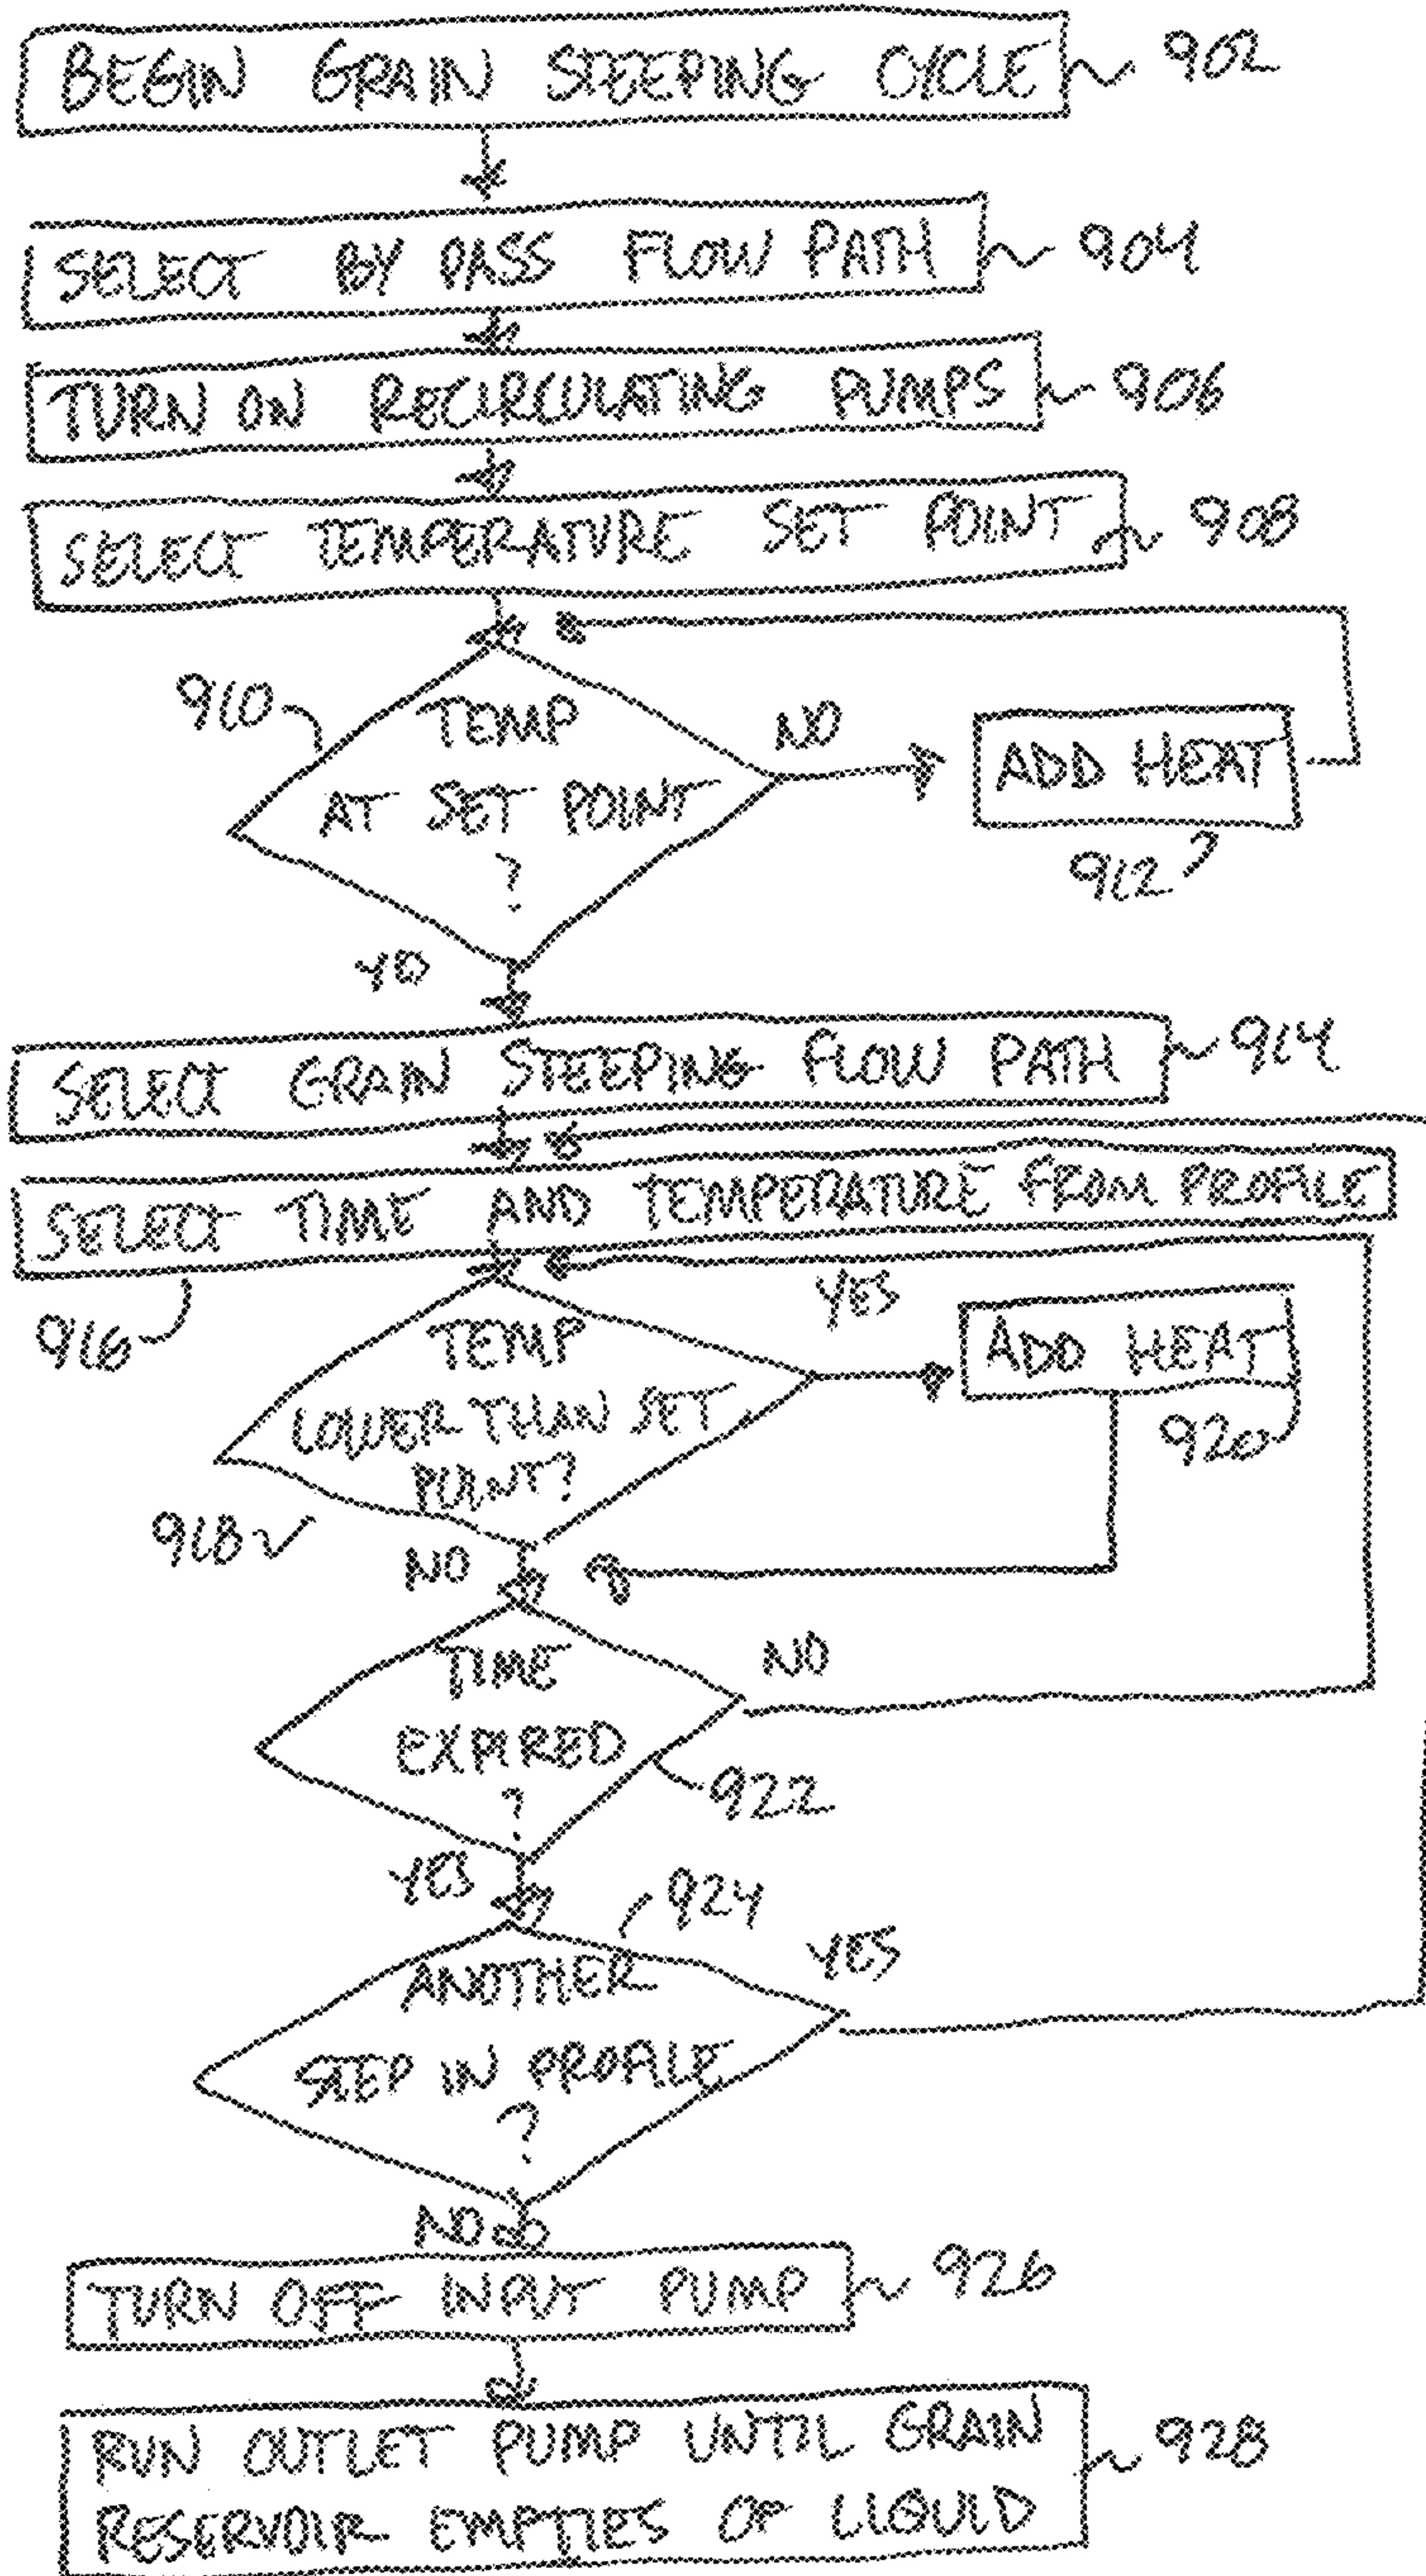 BEGIN GRAIN STEEPING CYCLE 902
SELECT BY PASS FLOW PATH 904
TURN ON RECIRCULATING PUMPS 906
SELECT TEMPERATURE SET POINT 908
910
TEMP
AT SET POINT
?
NO
ADD HEAT
912
SELECT GRAIN STEEPING FLOW PATH 914
SELECT TIME AND TEMPERATURE FROM PROFILE
916
TEMP
LOWER THAN SET
POINT?
YES
ADD HEAT
920
918
NO
TIME
EXPIRED
?
NO
922
YES
924
ANOTHER
STEP IN PROFILE
?
YES
NO
TURN OFF INPUT PUMP 926
RUN OUTLET PUMP UNTIL GRAIN
RESERVOIR EMPTIES OF LIQUID
928